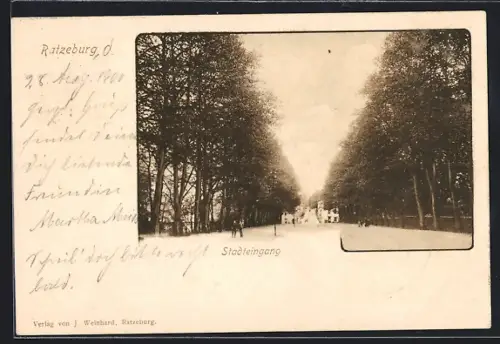 Ratzeburg, d.
28 Aug. 1900
Herzl. Gruß
sendet Deine
Dich liebende
Freundin
Martha
Schreib' doch bitte recht
bald.
Stadteingang
Verlag von J. Weinhard, Ratzeburg.